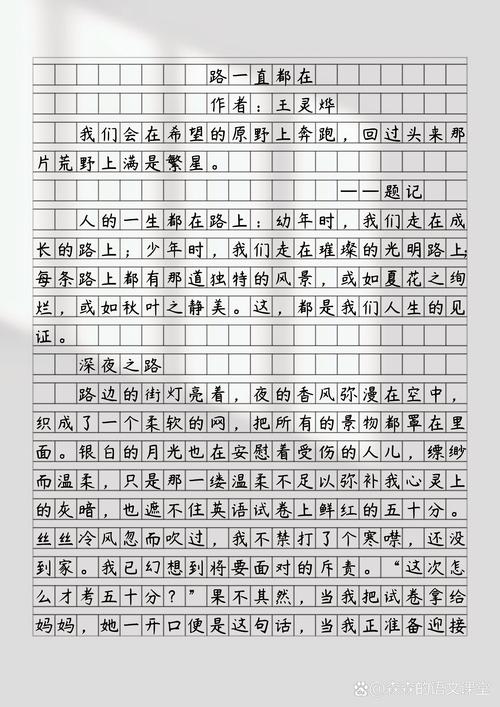 路一直都在
作者：王灵烨
我们会在希望的原野上奔跑，回过头来那
片荒野上满是繁星。
——题记
人的一生都在路上：幼年时，我们走在成
长的路上；少年时，我们走在璀璨的光明路上，
每条路上都有那道独特的风景，或如夏花之绚
烂，或如秋叶之静美。这，都是我们人生的见
证。
深夜之路
路边的街灯亮着，夜的香风弥漫在空中，
织成了一个柔软的网，把所有的景物都罩在里
面。银白的月光也在安慰着受伤的人儿，缥缈
而温柔，只是那一缕温柔不足以弥补我心灵上
的灰暗，也遮不住英语试卷上鲜红的五十分。
丝丝冷风忽而吹过，我不禁打了个寒噤，还没
到家。我已幻想到将要面对的斥责。“这次怎
么才考五十分？”果不其然，当我把试卷拿给
妈妈，她一开口便是这句话，当我正准备迎接
森森的语文课堂